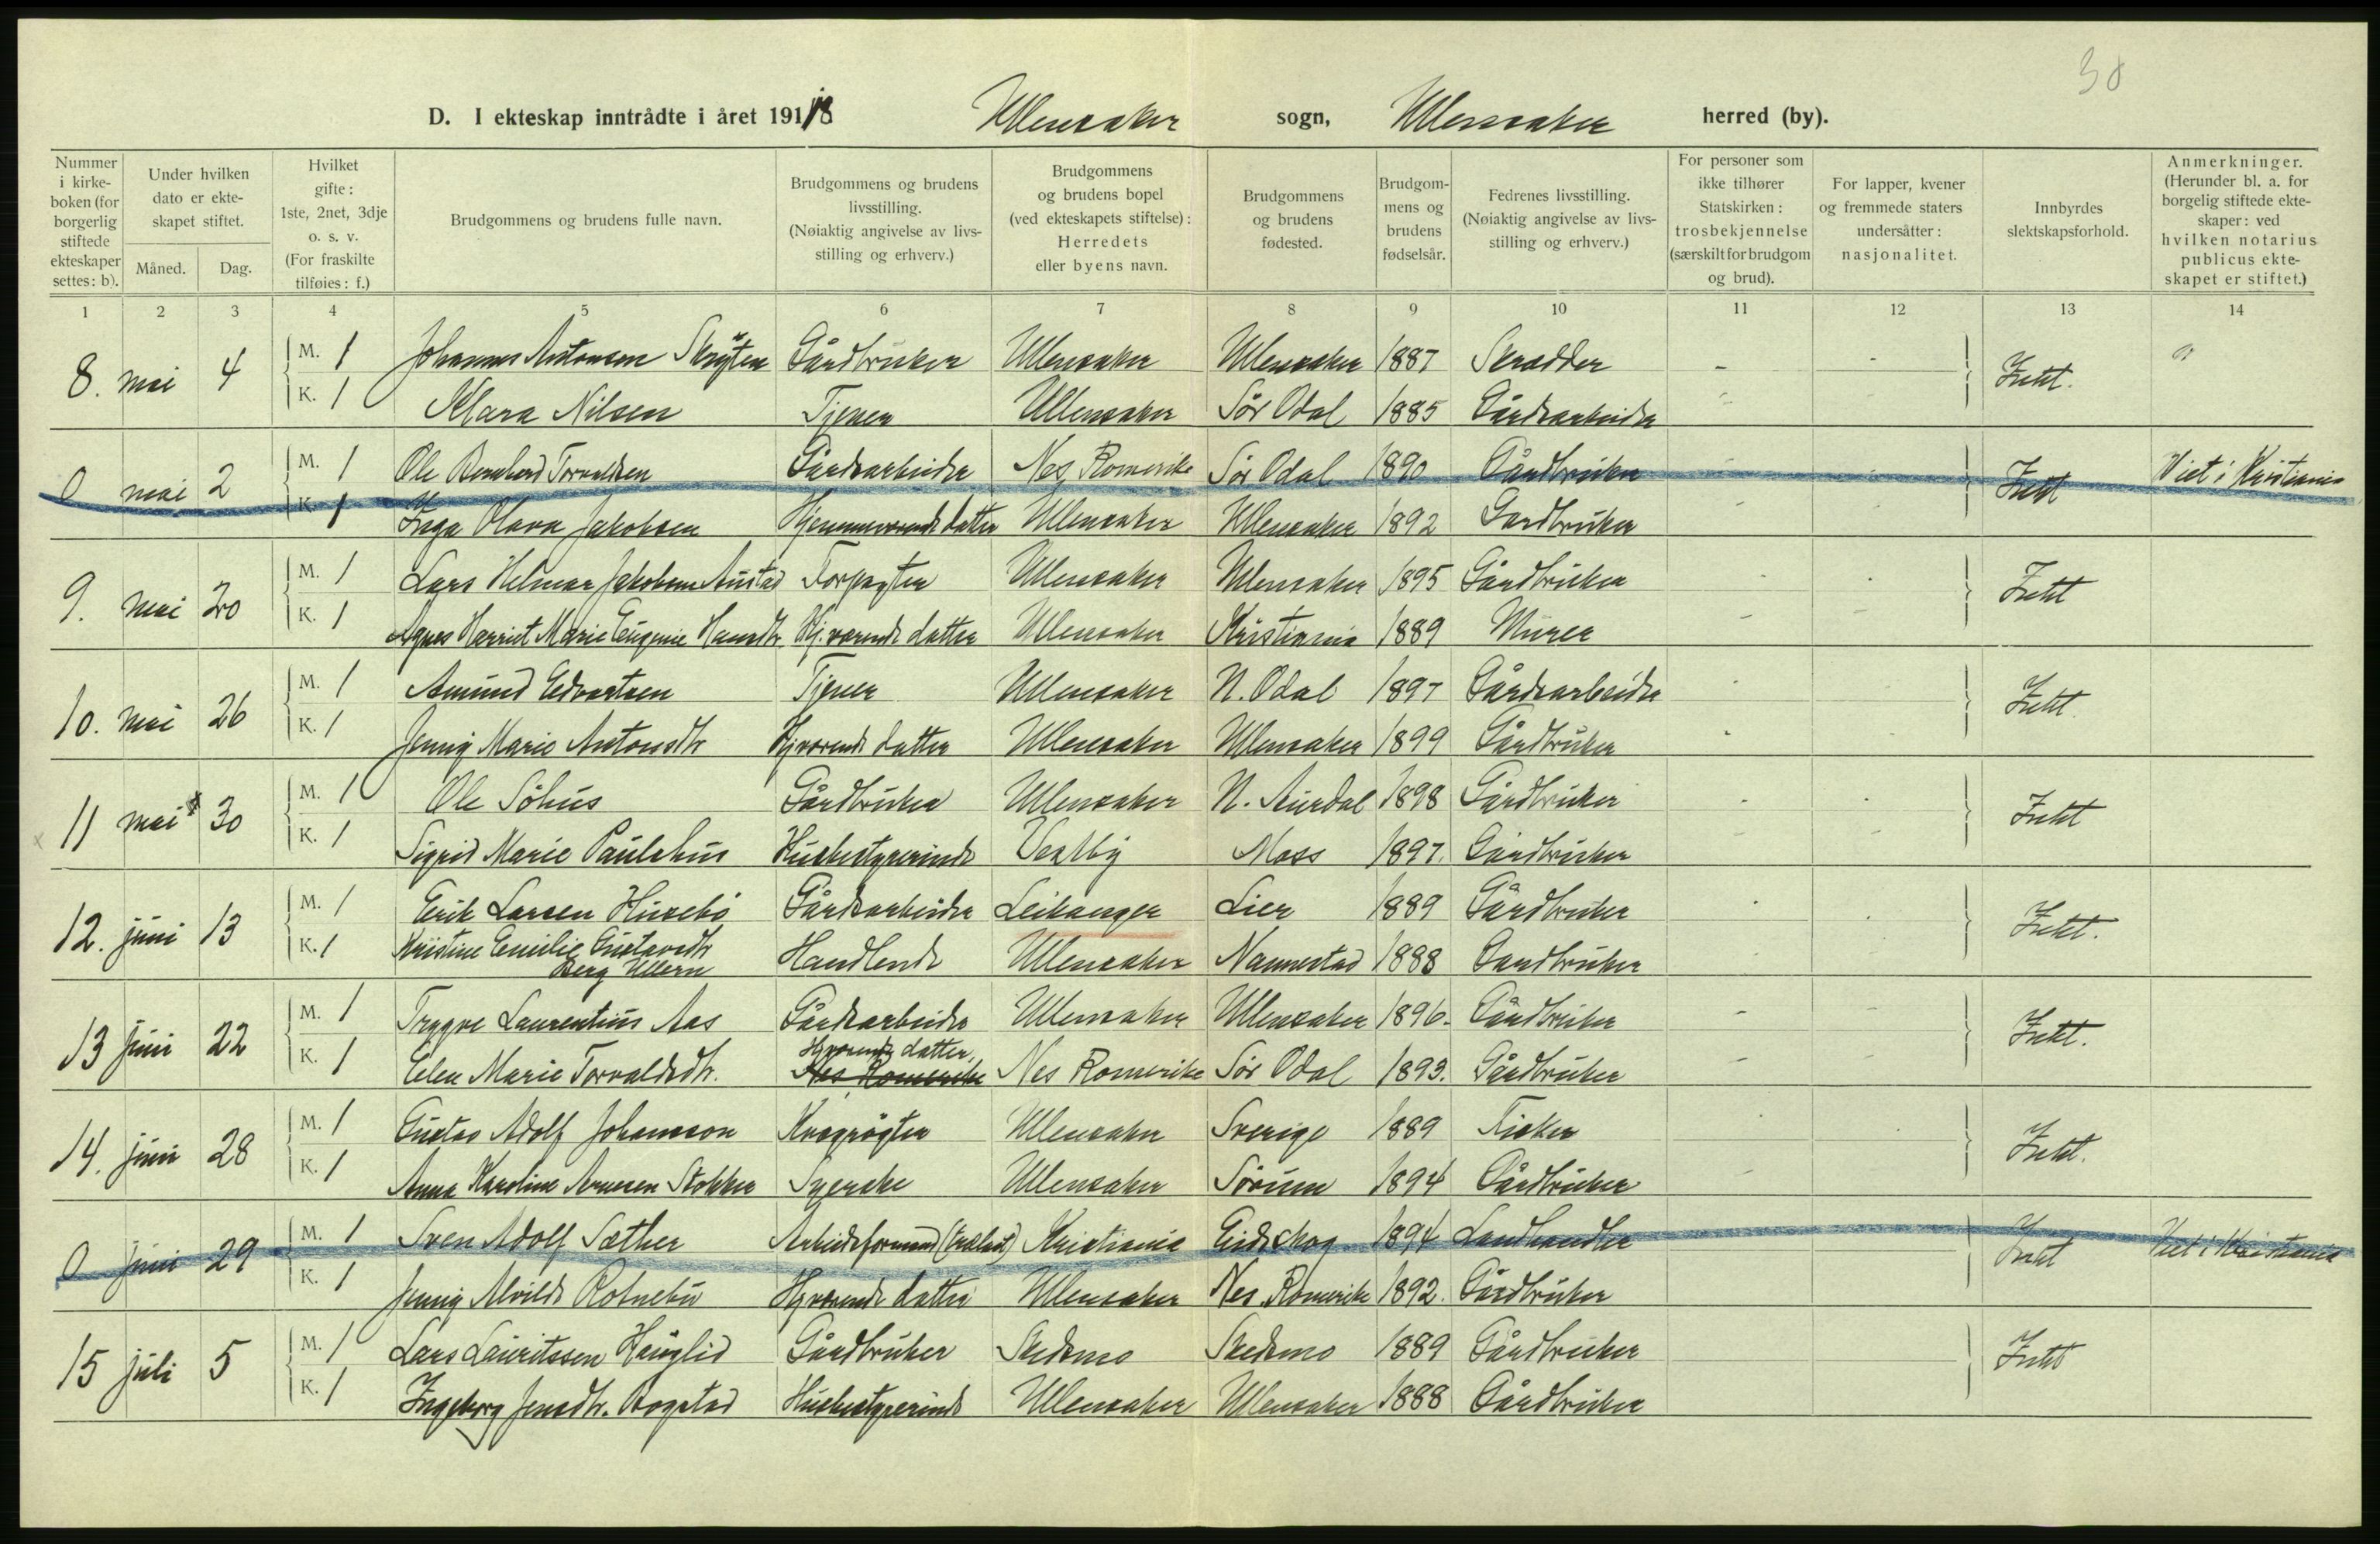 30
D. I ekteskap inntrådte i året 1918 Ullensaker sogn, Ullensaker herred (by).
Nummer i kirke-boken (for borgerlig stiftede ekteskaper settes: b).
Under hvilken dato er ekte-skapet stiftet.
Måned. Dag.
Hvilket gifte: 1ste, 2net, 3dje o. s. v. (For fraskilte tilføies: f.)
Brudgommens og brudens fulle navn.
Brudgommens og brudens livsstilling. (Nøiaktig angivelse av livs-stilling og erhverv.)
Brudgommens og brudens bopel (ved ekteskapets stiftelse): Herredets eller byens navn.
Brudgommens og brudens fødested.
Brudgom-mens og brudens fødselsår.
Fedrenes livsstilling. (Nøiaktig angivelse av livs-stilling og erhverv.)
For personer som ikke tilhører Statskirken: trosbekjennelse (særskilt for brudgom og brud).
For lapper, kvener og fremmede staters undersåtter: nasjonalitet.
Innbyrdes slektskapsforhold.
Anmerkninger. (Herunder bl. a. for borgelig stiftede ekte-skaper: ved hvilken notarius publicus ekte-skapet er stiftet.)
1 2 3 4 5 6 7 8 9 10 11 12 13 14
8. mai 4 M. 1 Johannes Antonsen Skrytten Gårdbruker Ullensaker Ullensaker 1887 Skrædder - - Intet.
K. 1 Klara Nilsen Tjener Ullensaker Sør Odal 1885 Gårdsarbeider
0 mai 2 M. 1 Ole Bernhard Torvaldsen Gårdsarbeider Nes Romerike Sør Odal 1890 Gårdbruker Intet Viet i Kristiania
K. 1 Inga Olava Jakobsen Hjemmeværende datter Ullensaker Ullensaker 1892 Gardbruker
9. mai 20 M. 1 Lars Helmar Jakobsen Austad Forpagter Ullensaker Ullensaker 1895 Gårdbruker Intet
K. 1 Agnes Harriet Marie Eugenie Hansdtr. Hj.værende datter Ullensaker Kristiania 1889 Murer
10. mai 26 M. 1 Amund Edvartsen Tjener Ullensaker N. Odal 1897 Gårdsarbeider Intet
K. 1 Jenny Marie Antonsdtr Hjværende datter Ullensaker Ullensaker 1899 Gårdbruker
11 mai 30 M. 1 Ole Söhus Gårdbruker Ullensaker N. Aurdal 1898 Gårdbruker Intet
K. 1 Sigrid Marie Paulshus Husbestyrerinde Vestby Moss 1897. Gårdbruker
12. juni 13 M. 1 Erik Larsen Husebö Gårdsarbeider Leikanger Lier 1889 Gårdbruker Intet.
K. 1 Kristine Emilie Gustavsdtr
Berg Ullern Handlende Ullensaker Nannestad 1888 Gardbruker
13 juni 22 M. 1 Trygve Laurentius Aas Gårdsarbeider Ullensaker Ullensaker 1896. Gårdbruker Intet.
K. 1 Elen Marie Torvaldsdtr. Hjværende datter. Nes Romerike Nes Romerike Sör Odal 1893. Gårdbruker
14. juni 28 M. 1 Gustav Adolf Johansson Kvægrögter Ullensaker Sverige 1889 Fisker Intet.
K. 1 Anna Karoline Arnesen Stokker Syerske Ullensaker Sörum 1894 Gårdbruker
0 juni 29 M. 1 Sven Adolf Sæther Kristiania Eidskog 1894 Landhandler Intet Viet i Kristiania
K. 1 Jenny Alvilde Rotnebu Hjværende datter Ullensaker Nes Romerike 1892. Gårdbruker
15 juli 5 M. 1 Lars Lauritssen Hauglid Gårdbruker Skedsmo Skedsmo 1889 Gårdbruker Intet
K. 1 Ingeborg Jensdtr. Bogstad Husbestyrerinde Ullensaker Ullensaker 1888 Gårdbruker